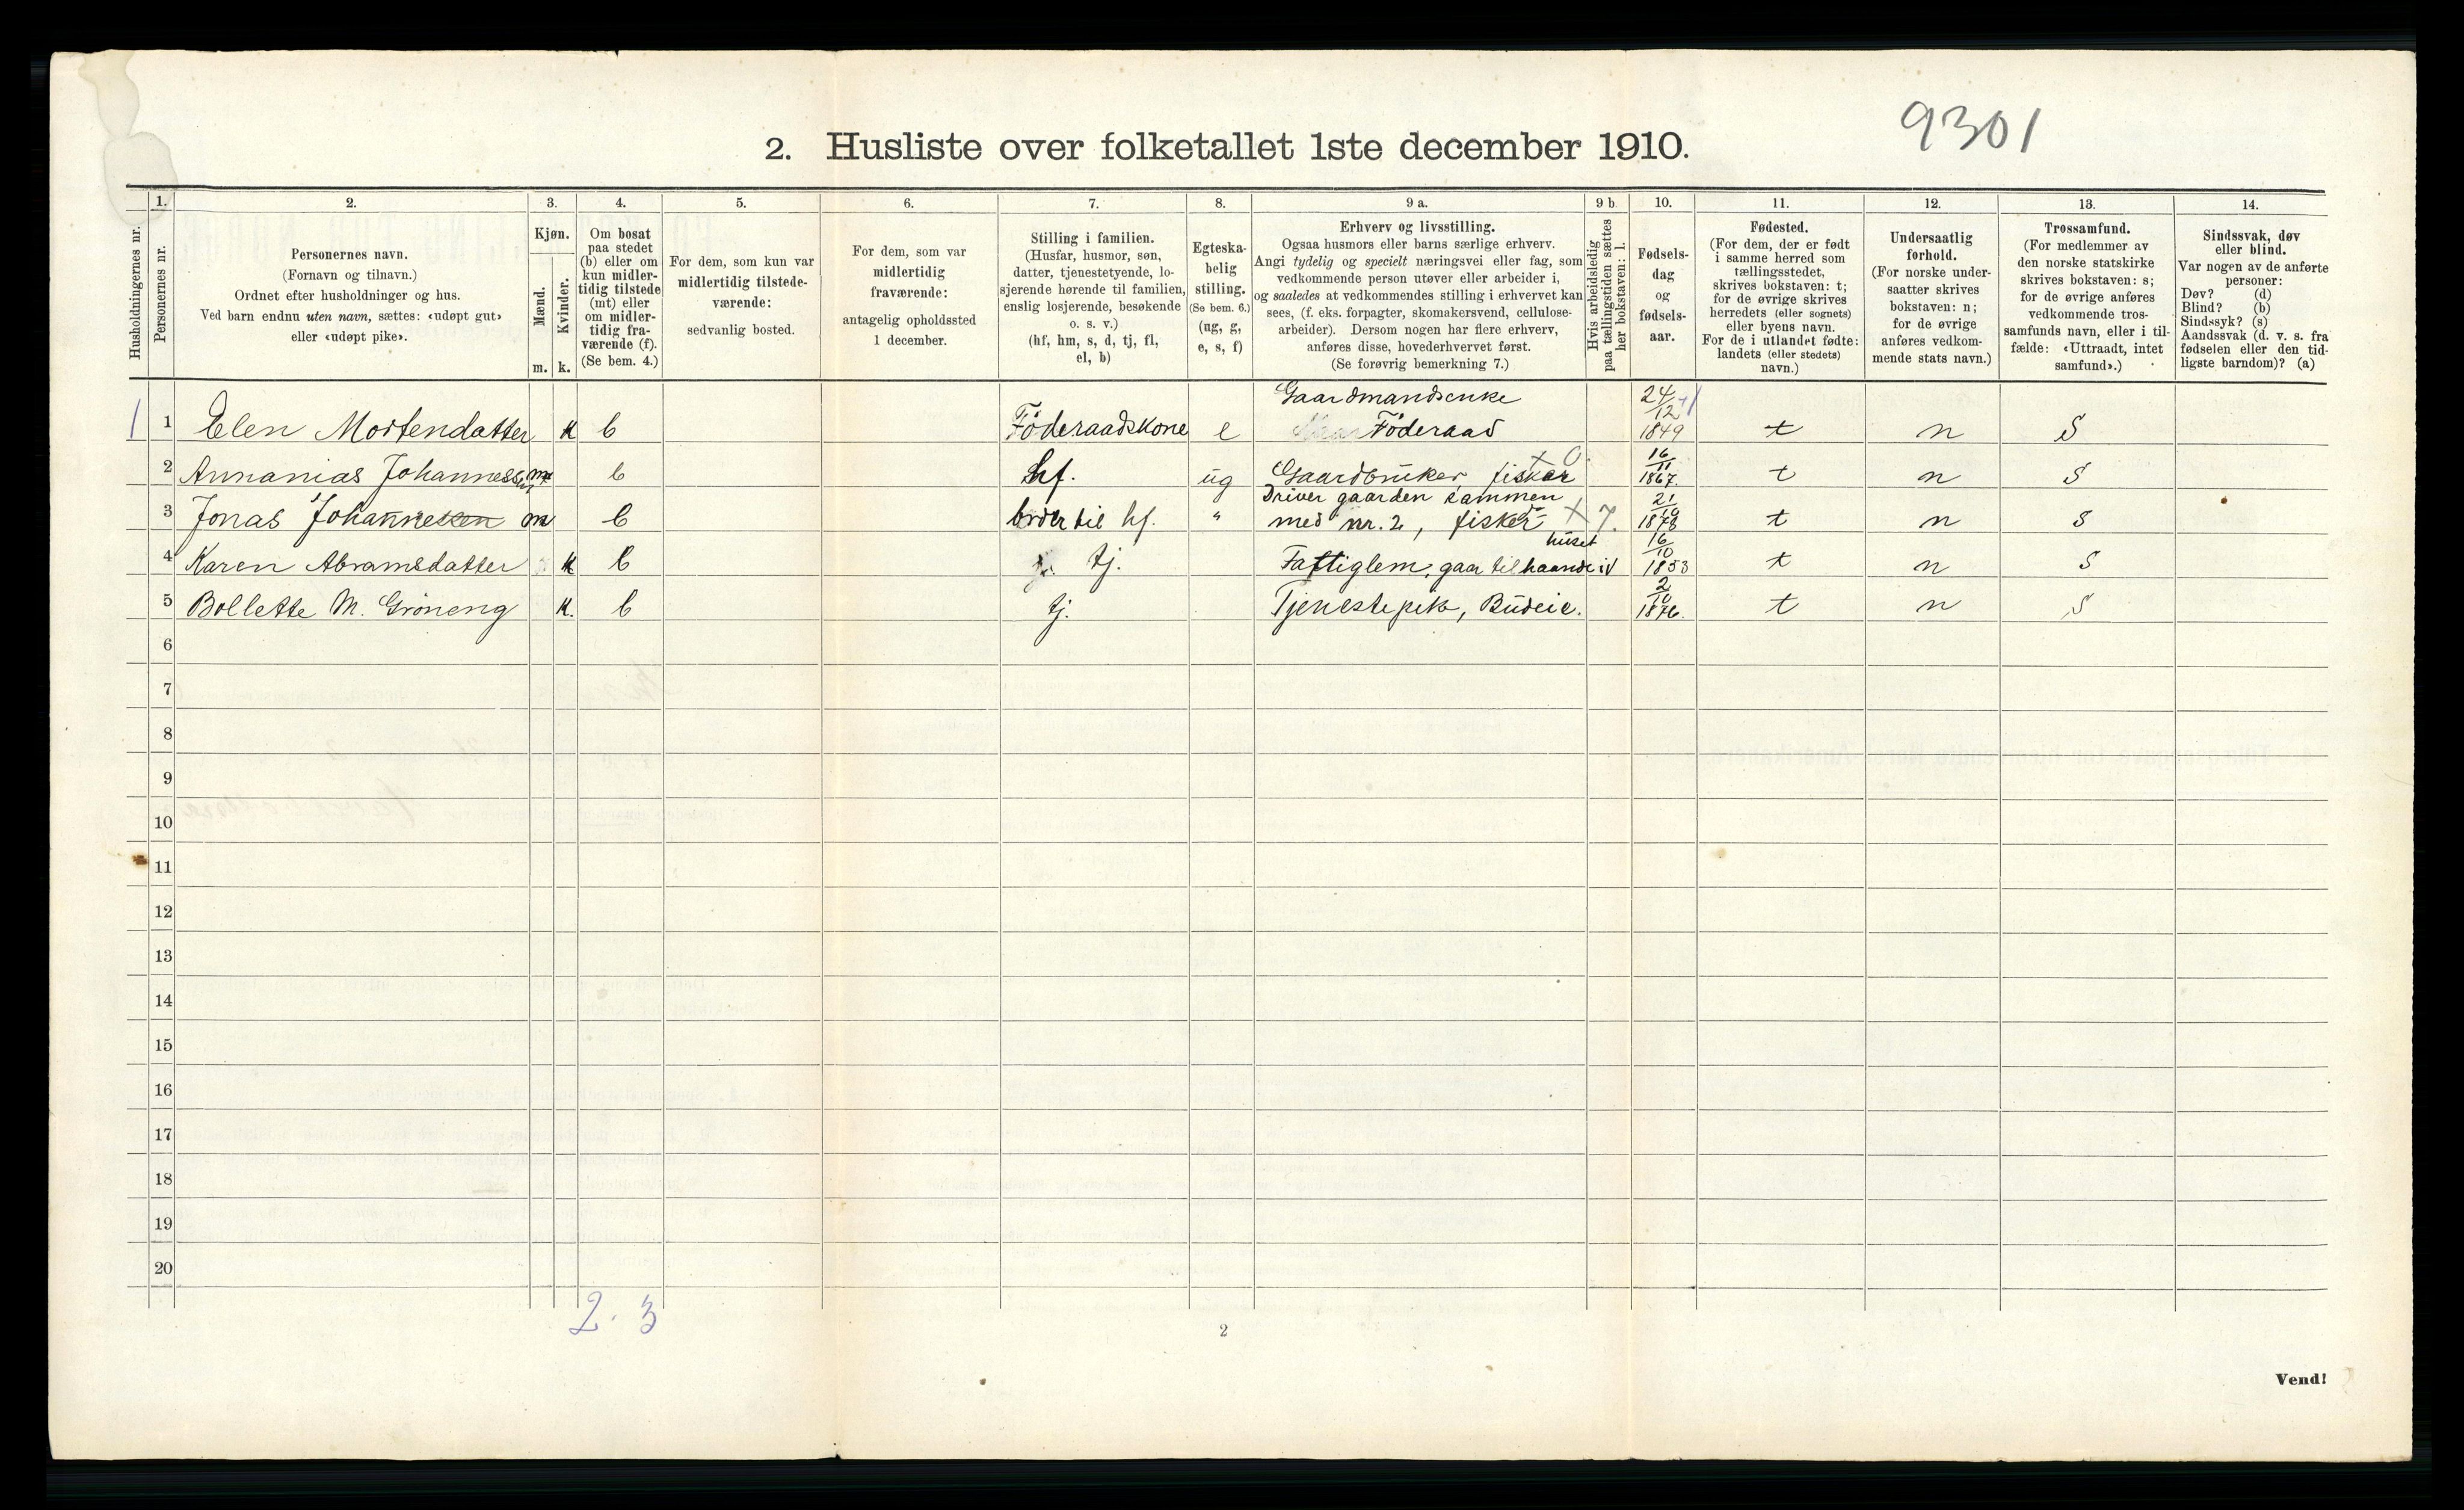 9301
2. Husliste over folketallet 1ste december 1910.
Husholdningernes nr.
1.
Personernes nr.
2.
Personernes navn.
(Fornavn og tilnavn.)
Ordnet efter husholdninger og hus.
Ved barn endnu uten navn, sættes: «udøpt gut»
eller «udøpt pike».
3.
Kjøn.
Mænd.
Kvinder.
m. k.
4.
Om bosat
paa stedet
(b) eller om
kun midler-
tidig tilstede
(mt) eller
om midler-
tidig fra-
værende (f).
(Se bem. 4.)
5.
For dem, som kun var
midlertidig tilstede-
værende:
sedvanlig bosted.
6.
For dem, som var
midlertidig
fraværende:
antagelig opholdssted
1 december.
7.
Stilling i familien.
(Husfar, husmor, søn,
datter, tjenestetyende, lo-
sjerende hørende til familien,
enslig losjerende, besøkende
o. s. v.)
(hf, hm, s, d, tj, fl,
el, b)
8.
Egteska-
belig
stilling.
(Se bem. 6.)
(ug, g,
e, s, f)
9 a.
Erhverv og livsstilling.
Ogsaa husmors eller barns særlige erhverv.
Angi tydelig og specielt næringsvei eller fag, som
vedkommende person utøver eller arbeider i,
og saaledes at vedkommendes stilling i erhvervet kan
sees, (f. eks. forpagter, skomakersvend, cellulose-
arbeider). Dersom nogen har flere erhverv,
anføres disse, hovederhvervet først.
(Se forøvrig bemerkning 7.)
9 b
Hvis arbeidsledig
paa tællingstiden sættes
her bokstaven: l.
10.
Fødsels-
dag
og
fødsels-
aar.
11.
Fødested.
(For dem, der er født
i samme herred som
tællingsstedet,
skrives bokstaven: t;
for de øvrige skrives
herredets (eller sognets)
eller byens navn.
For de i utlandet fødte:
landets (eller stedets)
navn.)
12.
Undersaatlig
forhold.
(For norske under-
saatter skrives
bokstaven: n;
for de øvrige
anføres vedkom-
mende stats navn.)
13.
Trossamfund.
(For medlemmer av
den norske statskirke
skrives bokstaven: s;
for de øvrige anføres
vedkommende tros-
samfunds navn, eller i til-
fælde: «Uttraadt, intet
samfund».)
14.
Sindssvak, døv
eller blind.
Var nogen av de anførte
personer:
Døv? (d)
Blind? (b)
Sindssyk? (s)
Aandssvak (d. v. s. fra
fødselen eller den tid-
ligste barndom)? (a)
Gaardmandsenke 24/12
1 1 Elen Mortendatter k b Føderaadskone e Føderaad 1849 t n S
16/11
2 Annanias Johannessen m b hf. ug Gaardbruker, fisker + 0. 1867. t n S
Driver gaarden sammen 21/10
3 Jonas Johannesen m b bror til hf. " med nr. 2, fisker + 7. 1878 t n S
huset 16/10
4 Karen Abramsdatter k b tj. Fattiglem, gaar tilhaande i 1853 t n S
2/10
5 Bollette M. Grøneng k. b tj. Tjenestepike, Budeie. 1876. t n S
6
7
8
9
10
11
12
13
14
15
16
17
18
19
20
2. 3
2
Vend!